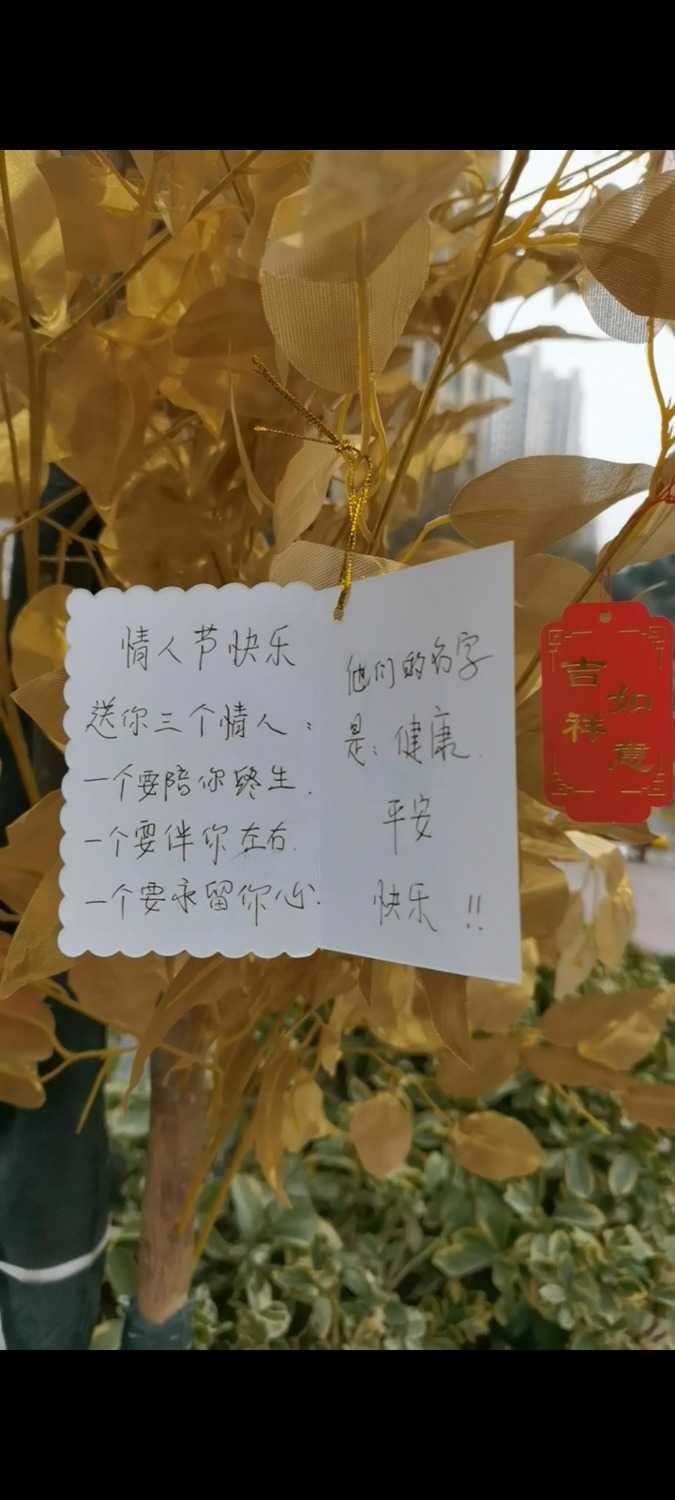 情人节快乐
送你三个情人：
一个要陪你终生.
一个要伴你左右.
一个要永留你心.
他们的名字
是：健康.
平安
快乐 !!
吉祥
如意